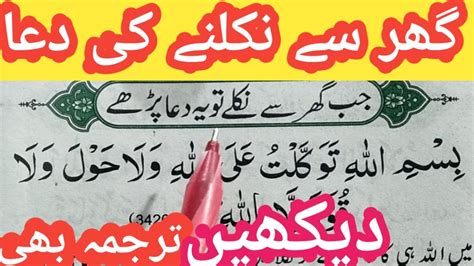 گھر سے نکلنے کی دعا
جب گھر سے نکلے تو یہ دعا پڑھے
بِسْمِ اللهِ تَوَكَّلْتُ عَلَى اللهِ وَلَا حَوْلَ وَلَا
اللهِ
دیکھیں ترجمہ بھی
میں اللہ ہی کا